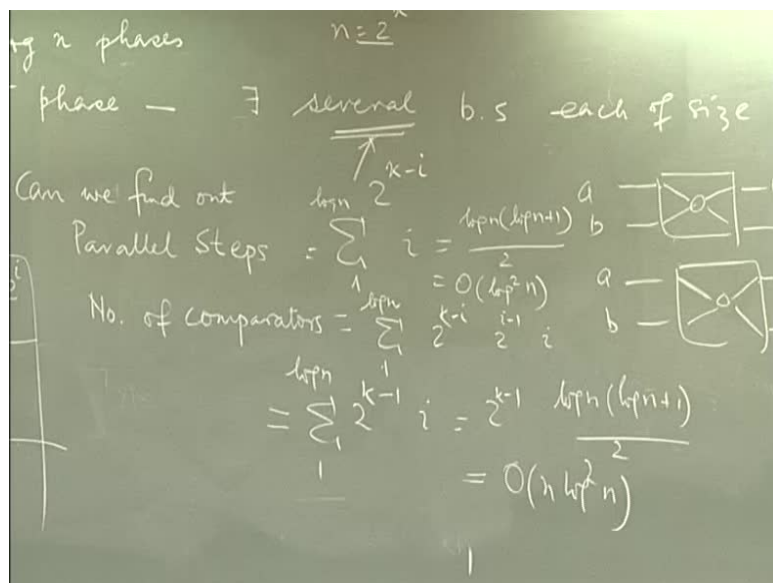 n = 2^k
log n phases
phase — ∃ several b.s each of size
2^{k-i}
Can we find out
Parallel Steps = \sum_{1}^{log n} i = \frac{log n (log n + 1)}{2}
= O(log² n)
No. of comparators = \sum_{1}^{log n} 2^{k-i} 2^{i-1} i
= \sum_{1}^{log n} 2^{k-1} i = 2^{k-1} \frac{log n (log n + 1)}{2}
= O(n log² n)
a
b
a
b
2^i